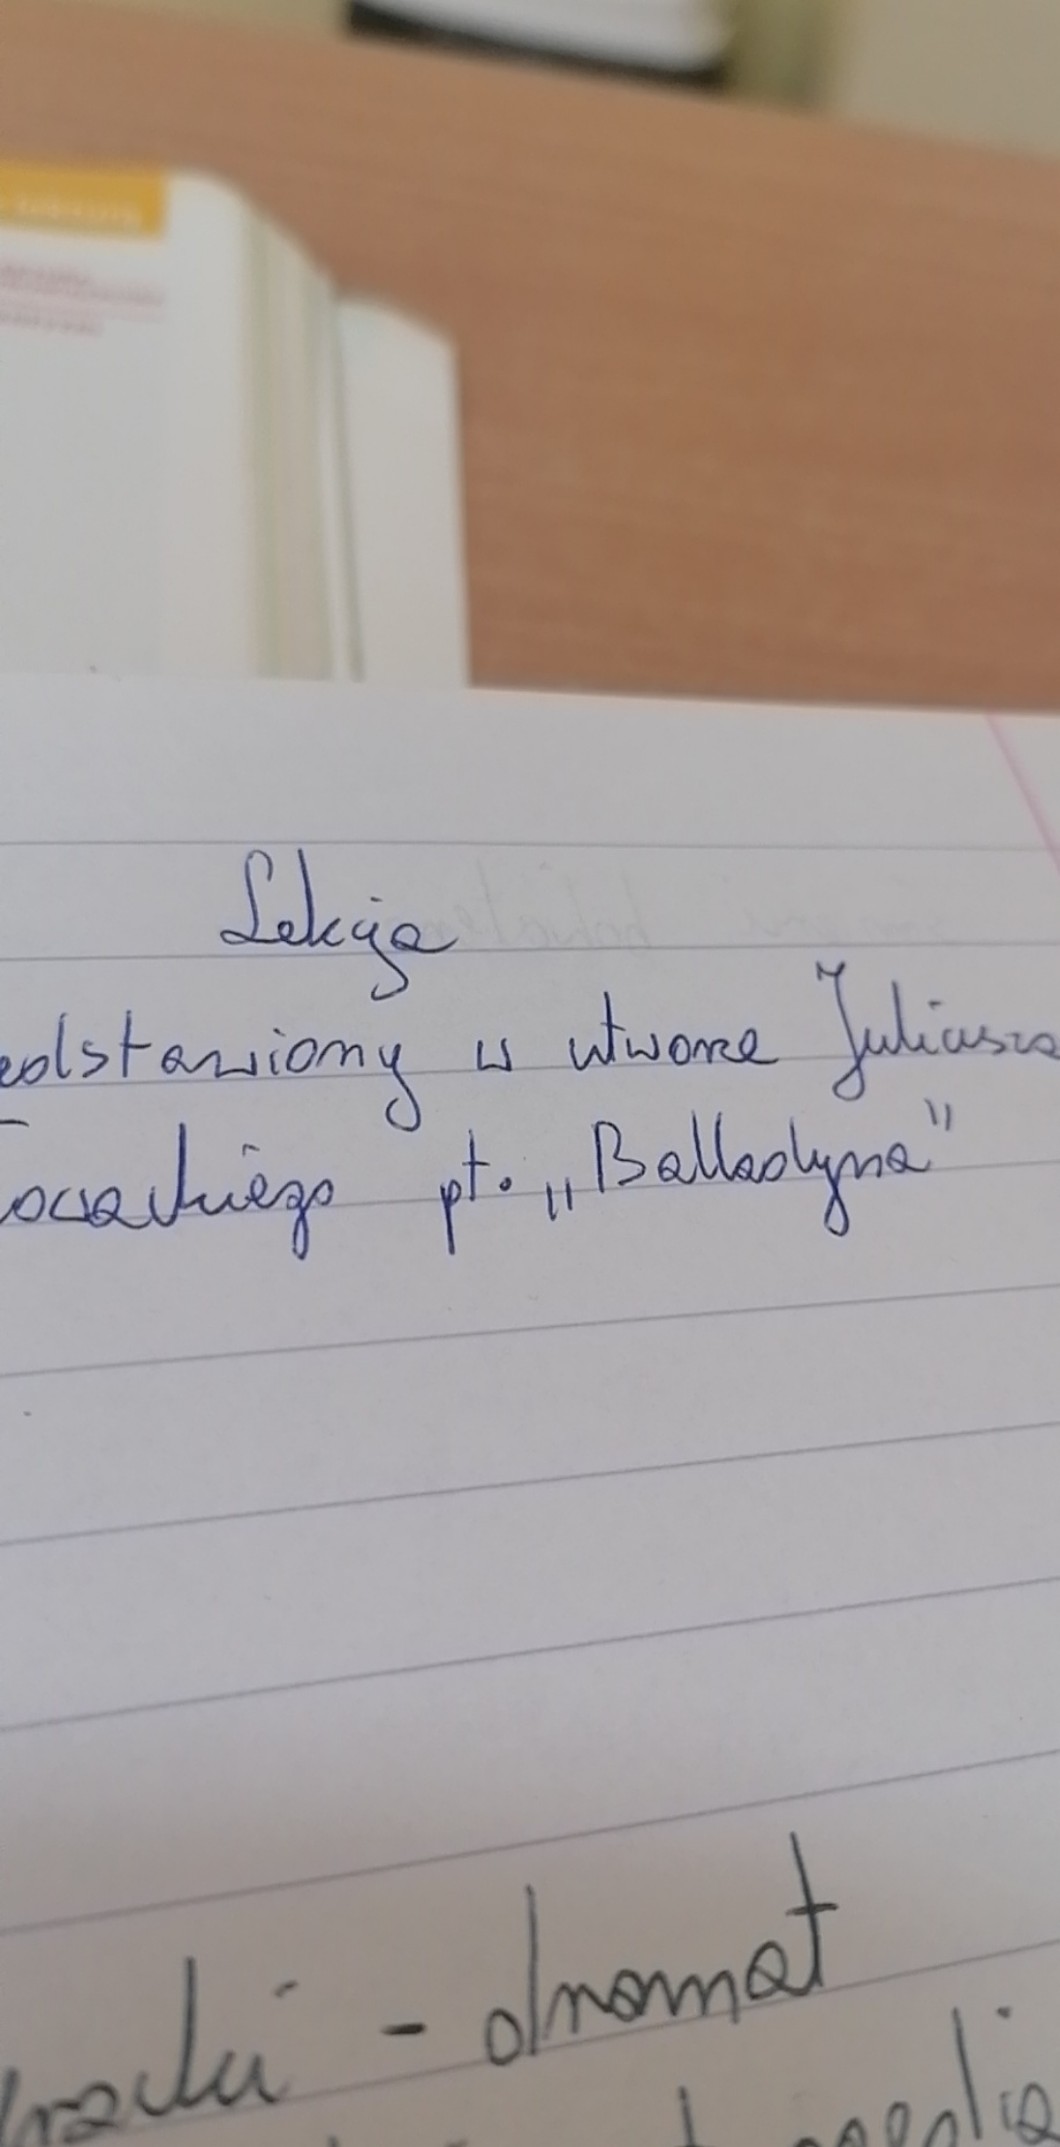 Lekcja
edstawiony w utworze Juliusza
owackiego pt. „Balladyna"
- dramat